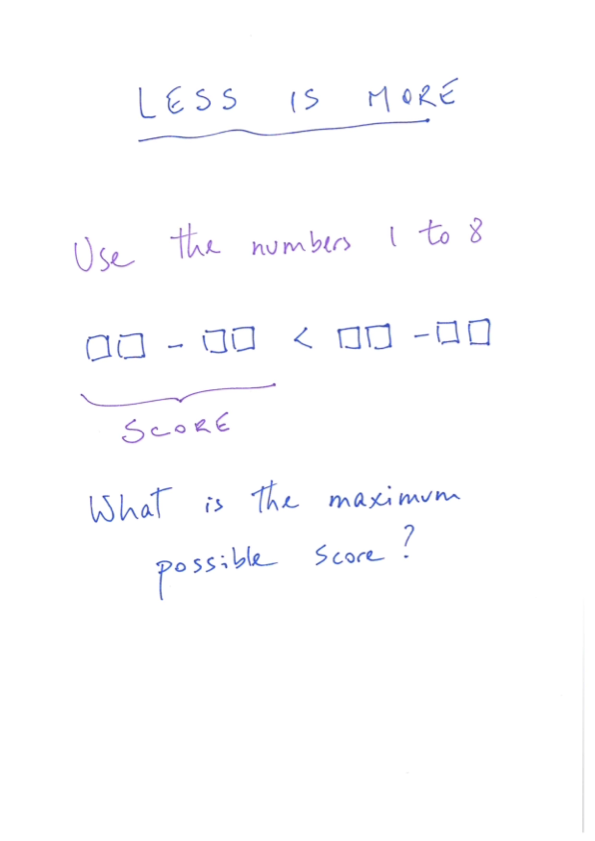 LESS IS MORE
Use the numbers 1 to 8
□□ - □□ < □□ - □□
SCORE
What is the maximum
possible score?